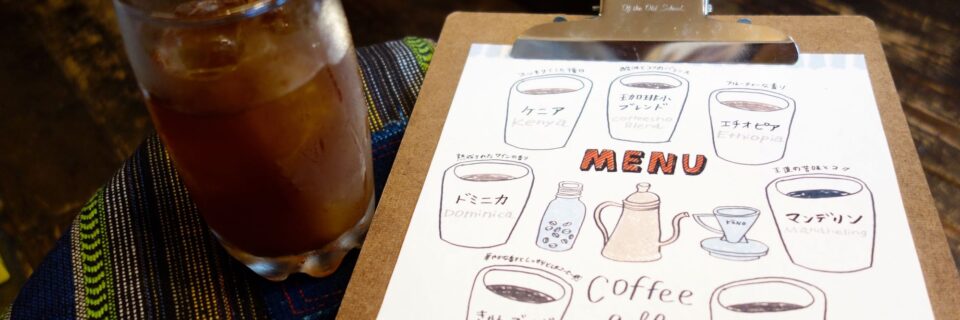 Of the Old School
ケニア
Kenya
珈琲小
ブレンド
coffeesho
Blend
フルーティーな香り
エチオピア
Ethiopia
MENU
ドミニカ
Dominica
王道の苦味とコク
マンデリン
Mandheling
KONO
Coffee